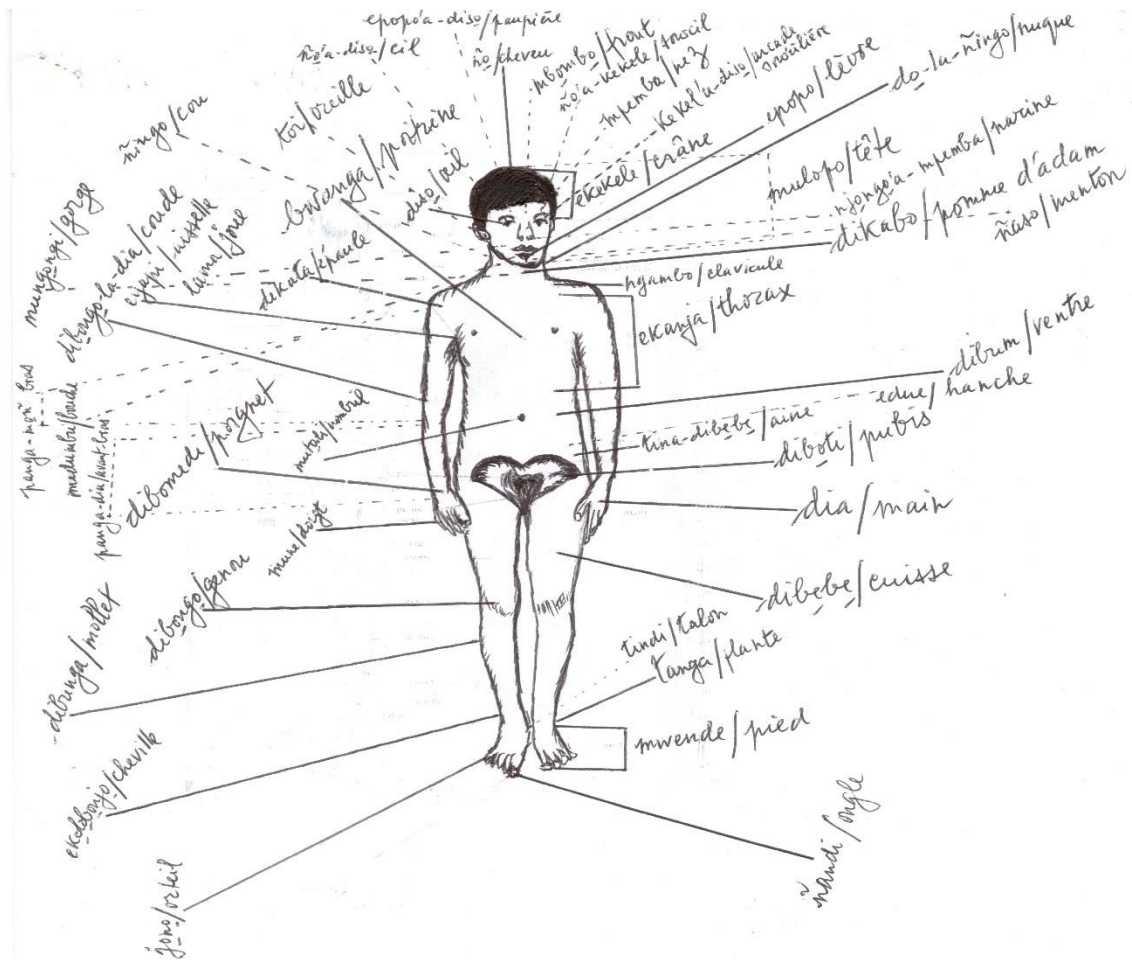 epopo'a-diso/paupière
ño'a-diso/cil
ño/cheveu
mbombo/front
ño'a-kekele/sourcil
mpemba/nez
kekel'a-diso/arcade sourcilière
epopo/lèvre
do-la-ñingo/nuque
ñingo/cou
toi/oreille
bwanga/poitrine
diso/œil
ekekele/crâne
mulopo/tête
njongo'a-mpemba/narine
dikabo/pomme d'adam
ñaso/menton
mungongi/gorge
dibongo-la-dia/coude
eyapi/aisselle
lama/joue
dikata/épaule
ngambo/clavicule
ekanja/thorax
dibum/ventre
edue/hanche
mudumbu/bouche
panga-dia/avant-bras
dibomede/poignet
mutodi/nombril
tina-dibebe/aine
diboti/pubis
dia/main
mune/doigt
dibongo/genou
dibebe/cuisse
dibunga/mollet
tindi/talon
tanga/plante
mwende/pied
ekodobonjo/cheville
jono/orteil
ñandi/ongle